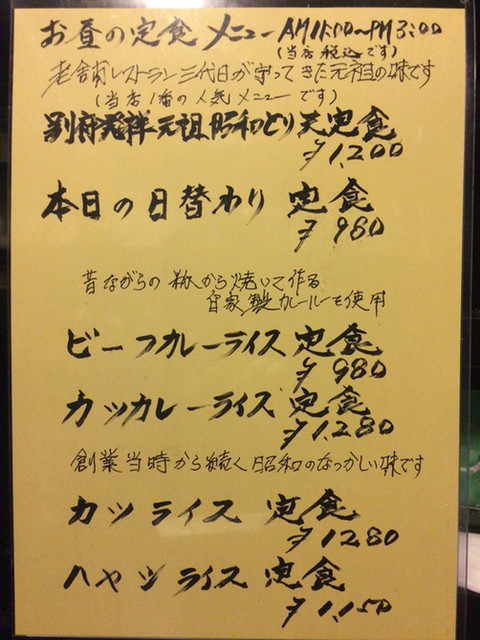 お昼の定食メニュー AM11:00〜PM3:00
(当店税込です)
老舗レストラン三代目が守ってきた元祖の味です
(当店1番の人気メニューです)
別府発祥元祖昭和とり天定食
¥1,200
本日の日替わり定食
¥980
昔ながらの粉から焼いて作る
自家製カレールーを使用
ビーフカレーライス定食
¥980
カツカレーライス定食
¥1,280
創業当時から続く昭和のなつかしい味です
カツライス定食
¥1280
ハヤシライス定食
¥1,150